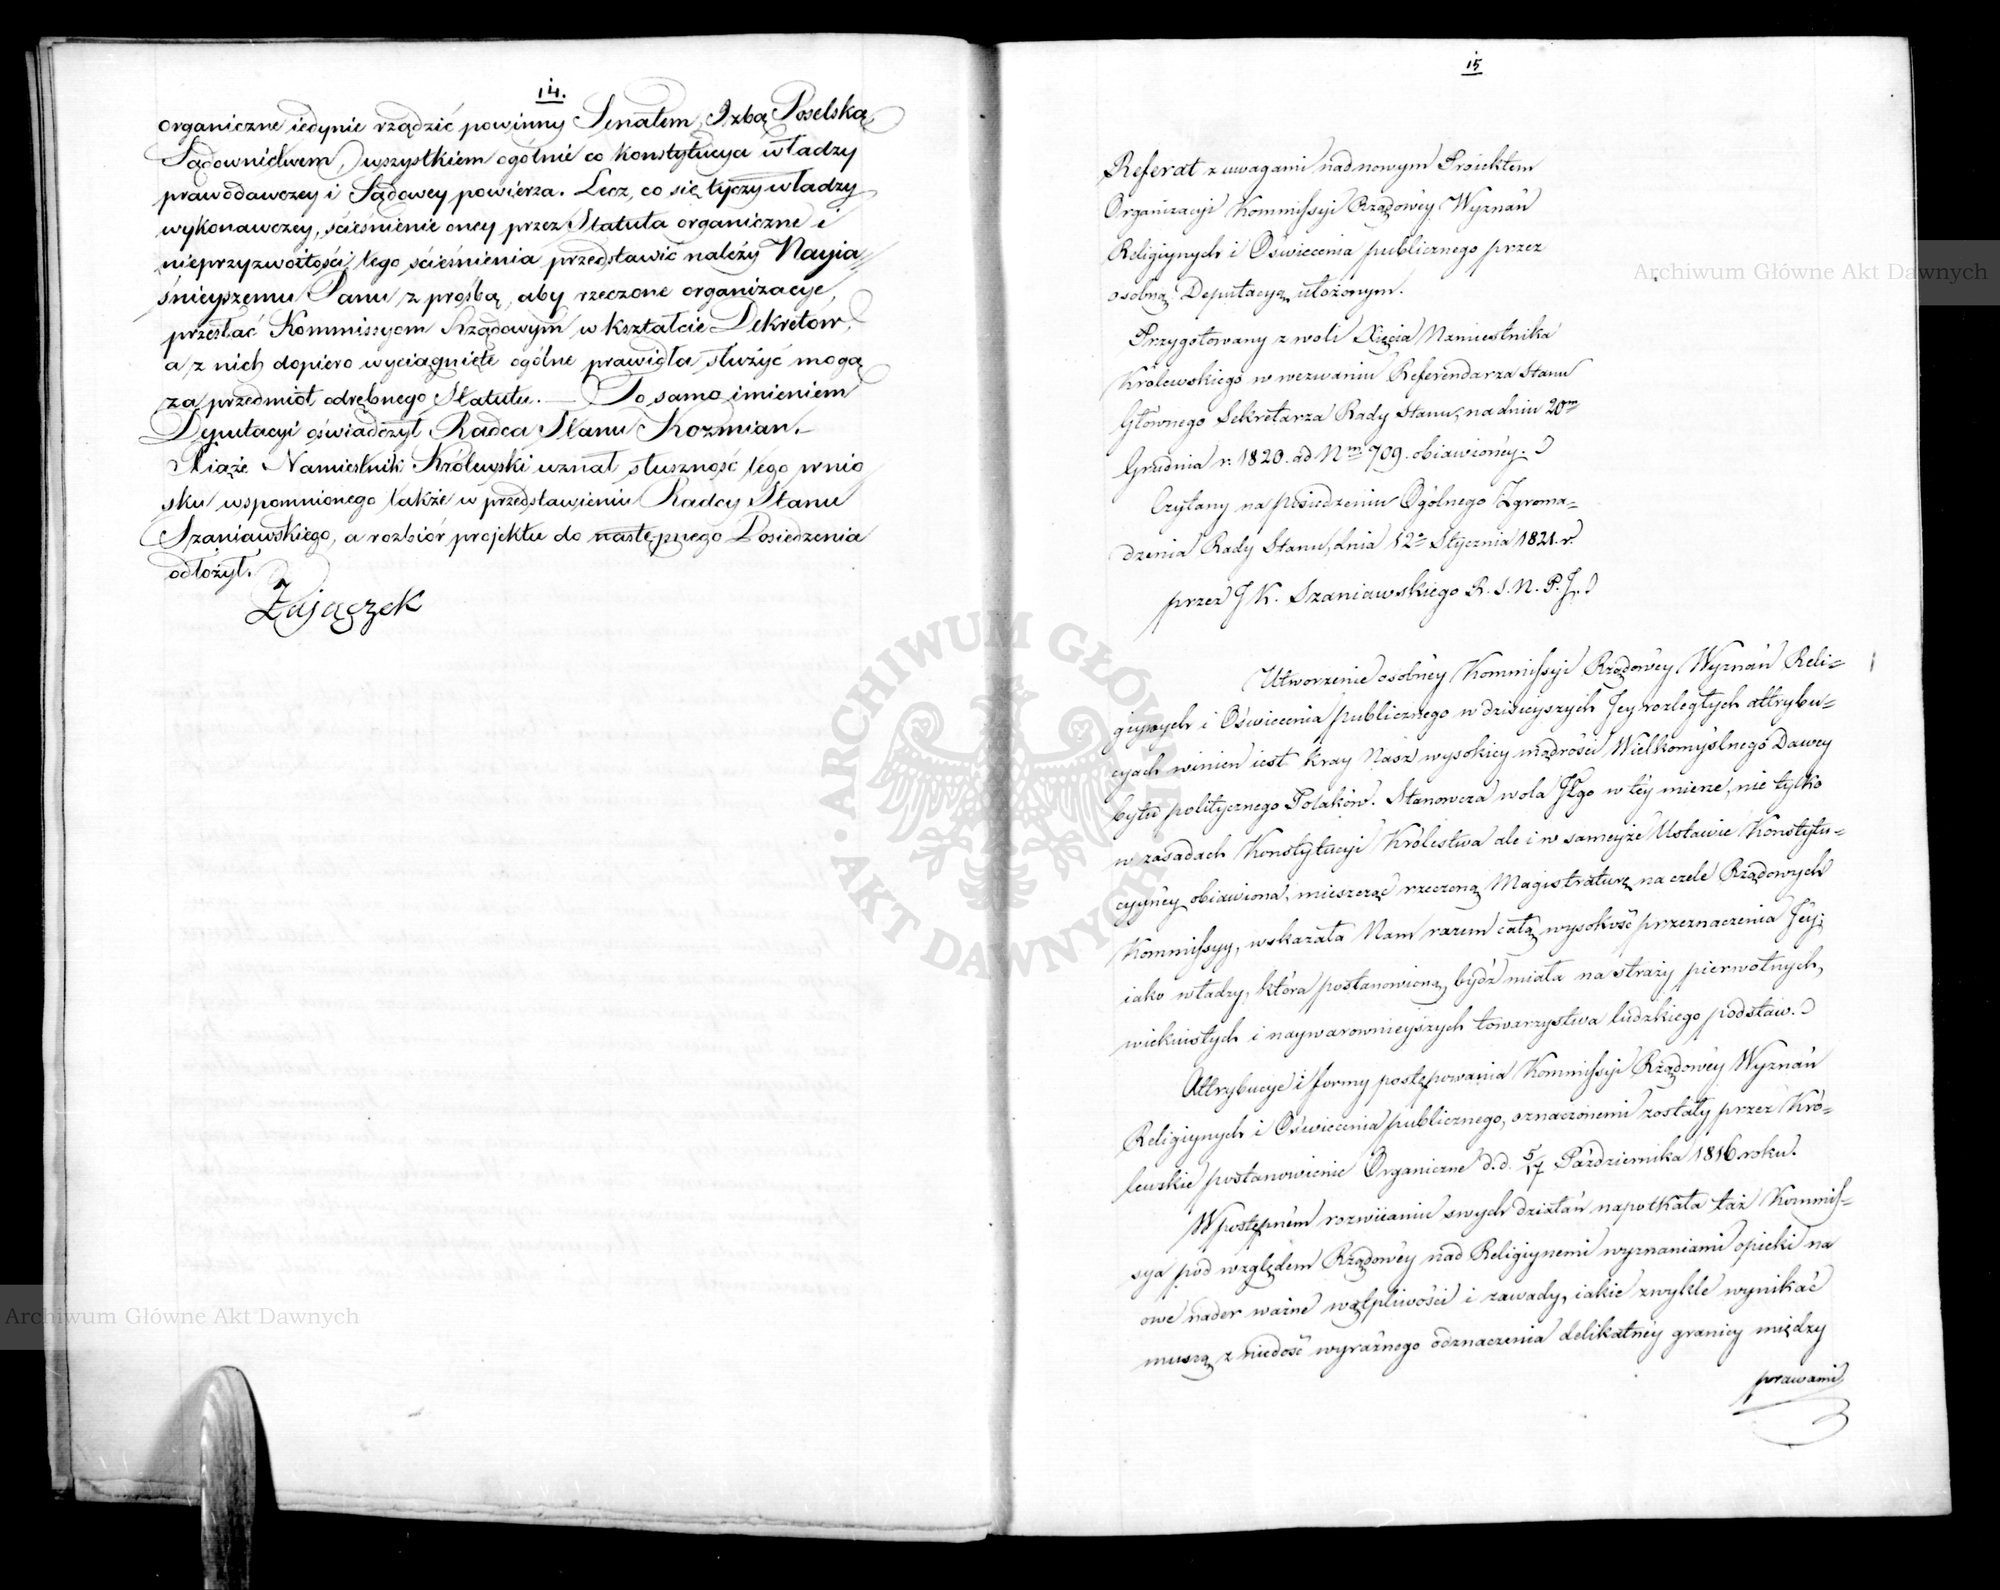 14.
organiczne iedynie rządzić powinny Senatem, Izbą Poselską,
Sądownictwem, wszystkiem ogólnie co konstytucya władzy
prawodawczey i Sądowey powierza. Lecz, co się tyczy władzy
wykonawczey, ścieśnienie oney przez Statuta organiczne i
nieprzyzwoitości tego ścieśnienia przedstawić należy Nayia=
śnieyszemu Panu z prośbą, aby rzeczone organizacye,
przesłać Kommissyom Rządowym w kształcie Dekretów,
a z nich dopiero wyciągnięte ogólne prawidła służyć mogą
za przedmiot odrębnego Statutu. — To samo imieniem
Deputacyi oświadczył Radca Stanu Kozmian. —
Xiąże Namiestnik Królewski uznał słuszność tego wnio
sku wspomnionego także w przedstawieniu Radcy Stanu
Szaniawskiego, a rozbiór projektu do następnego Posiedzenia
odłożył.
Zajączek
15
Referat z uwagami nad nowym Proiektem
Organizacyi Kommissyi Rządowéy Wyznań
Religiynych i Oświecenia publicznego przez
osobną Deputacyą ułożonym.
Przygotowany z woli Xięcia Namiestnika
Królewskiego w wezwaniu Referendarza Stanu
Głównego Sekretarza Rady Stanu, na dniu 20m
Grudnia r. 1820. ad Nm 709. obiawionéy.
Czytany na posiedzeniu Ogólnego Zgroma=
dzenia Rady Stanu, dnia 12o Stycznia 1821. r.
przez J. K. Szaniawskiego R. S. N. P. J.
Utworzenie osobnéy Kommissyi Rządowéy Wyznań Reli=
giynych i Oświecenia publicznego w dzisieyszych Jey rozległych attrybu=
cyach winien iest Kray Nasz wysokiey mądrości Wielkomyślnego Dawcy
bytu politycznego Polaków. Stanowcza wola JEgo w téy mierze, nie tylko
w zasadach Konstytucyi Królestwa ale i w sameyże Ustawie Konstytu=
cyynéy obiawiona, mieszcząc rzeczoną Magistraturę na czele Rządowych
Kommissyy, wskazała Nam razem całą wysokość przeznaczenia Jey;
iako władzy, która postanowioną bydź miała na straży pierwotnych,
wiekuistych i naywarownieyszych towarzystwa ludzkiego podstaw.
Attrybucye i formy postępowania Kommissyi Rządowéy Wyznań
Religiynych i Oświecenia publicznego, oznaczonemi zostały przez Kró=
lewskie postanowienie Organiczne d. d. 5/17 Października 1816 roku.
W postępném rozwiianiu swych działań napotkała taż Kommis=
sya pod względem Rządowéy nad Religiynemi wyznaniami opieki na
owe nader ważne wątpliwości i zawady, iakie zwykle wynikać
muszą z niedość wyraźnego odznaczenia delikatnéy granicy między
prawami
Archiwum Główne Akt Dawnych
Archiwum Główne Akt Dawnych
ARCHIWUM GŁÓWNE AKT DAWNYCH